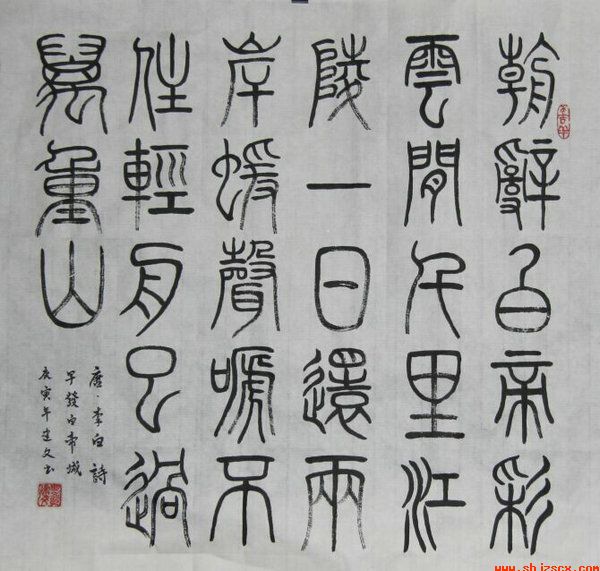 朝辭白帝彩
雲閒千里江
陵一日還兩
岸蝯聲嗁不
住輕舟已過
萬重山
唐·李白詩
早發白帝城
庚寅年建文书